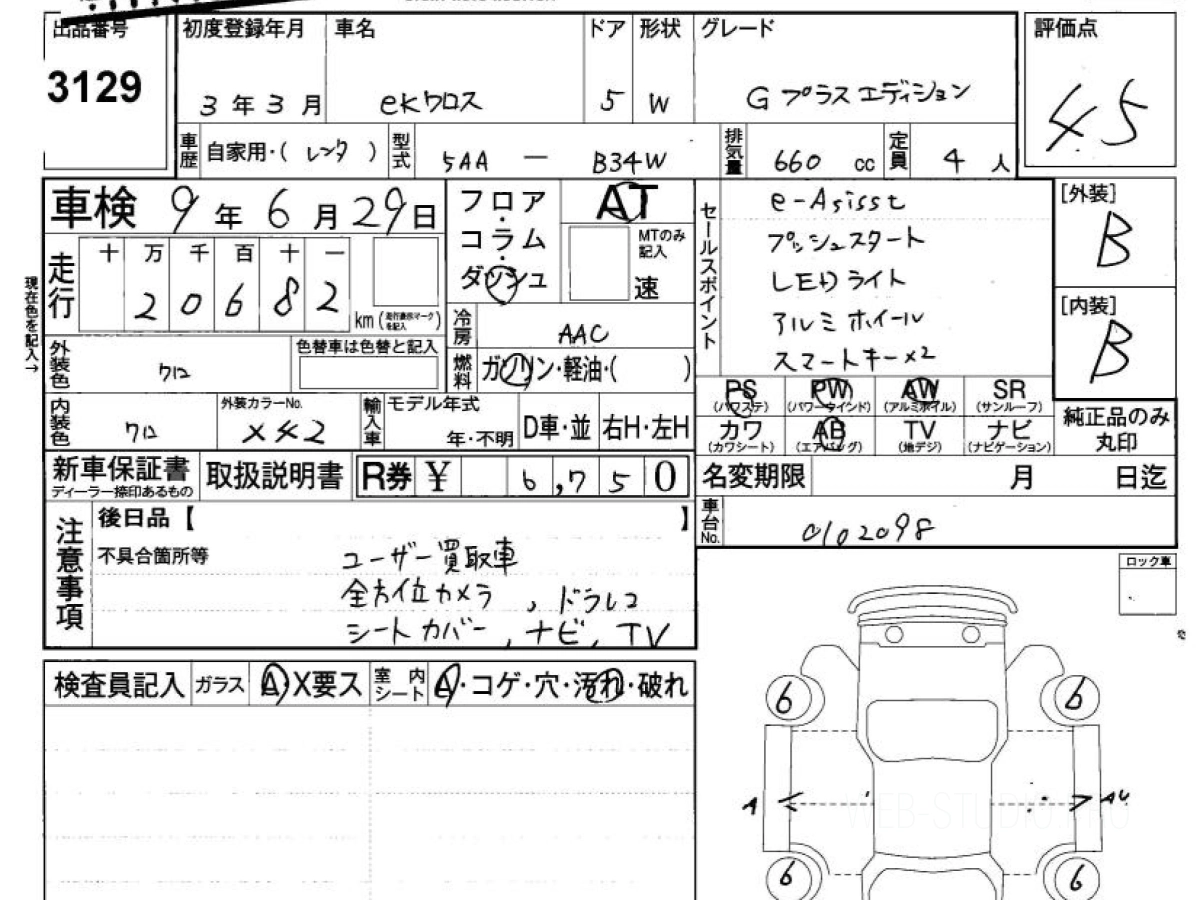 出品番号
3129
初度登録年月
3年3月
車名
eKクロス
ドア
5
形状
W
グレード
G プラスエディション
評価点
4.5
車歴
自家用・( レンタ )
型式
5AA — B34W
排気量
660 cc
定員
4人
車検 9年6月29日
フロア・コラム・ダッシュ
AT
MTのみ記入
速
セールスポイント
e-Asisst
プッシュスタート
LEDライト
アルミホイール
スマートキー×2
[外装]
B
[内装]
B
現在色を記入→
走行
十 万 千 百 十 一
2 0 6 8 2
km(走行表示マークを記入)
冷房
AAC
外装色
クロ
色替車は色替と記入
燃料
ガソリン・軽油・( )
PS (パワステ)
PW (パワーウインド)
AW (アルミホイル)
SR (サンルーフ)
カワ (カワシート)
AB (エアバッグ)
TV (地デジ)
ナビ (ナビゲーション)
純正品のみ丸印
内装色
クロ
外装カラーNo.
X42
輸入車
モデル年式
年・不明
D車・並
右H・左H
新車保証書
ディーラー捺印あるもの
取扱説明書
R券 ¥ 6,750
名変期限 月 日迄
車台No.
0102098
注意事項
後日品【 】
不具合箇所等
ユーザー買取車
全方位カメラ , ドラレコ
シートカバー , ナビ, TV
ロック車
検査員記入
ガラス
A・X要ス
室内シート
A・コゲ・穴・汚れ・破れ
6
6
A
AU
WEB-STUDIO.PRO
6
6